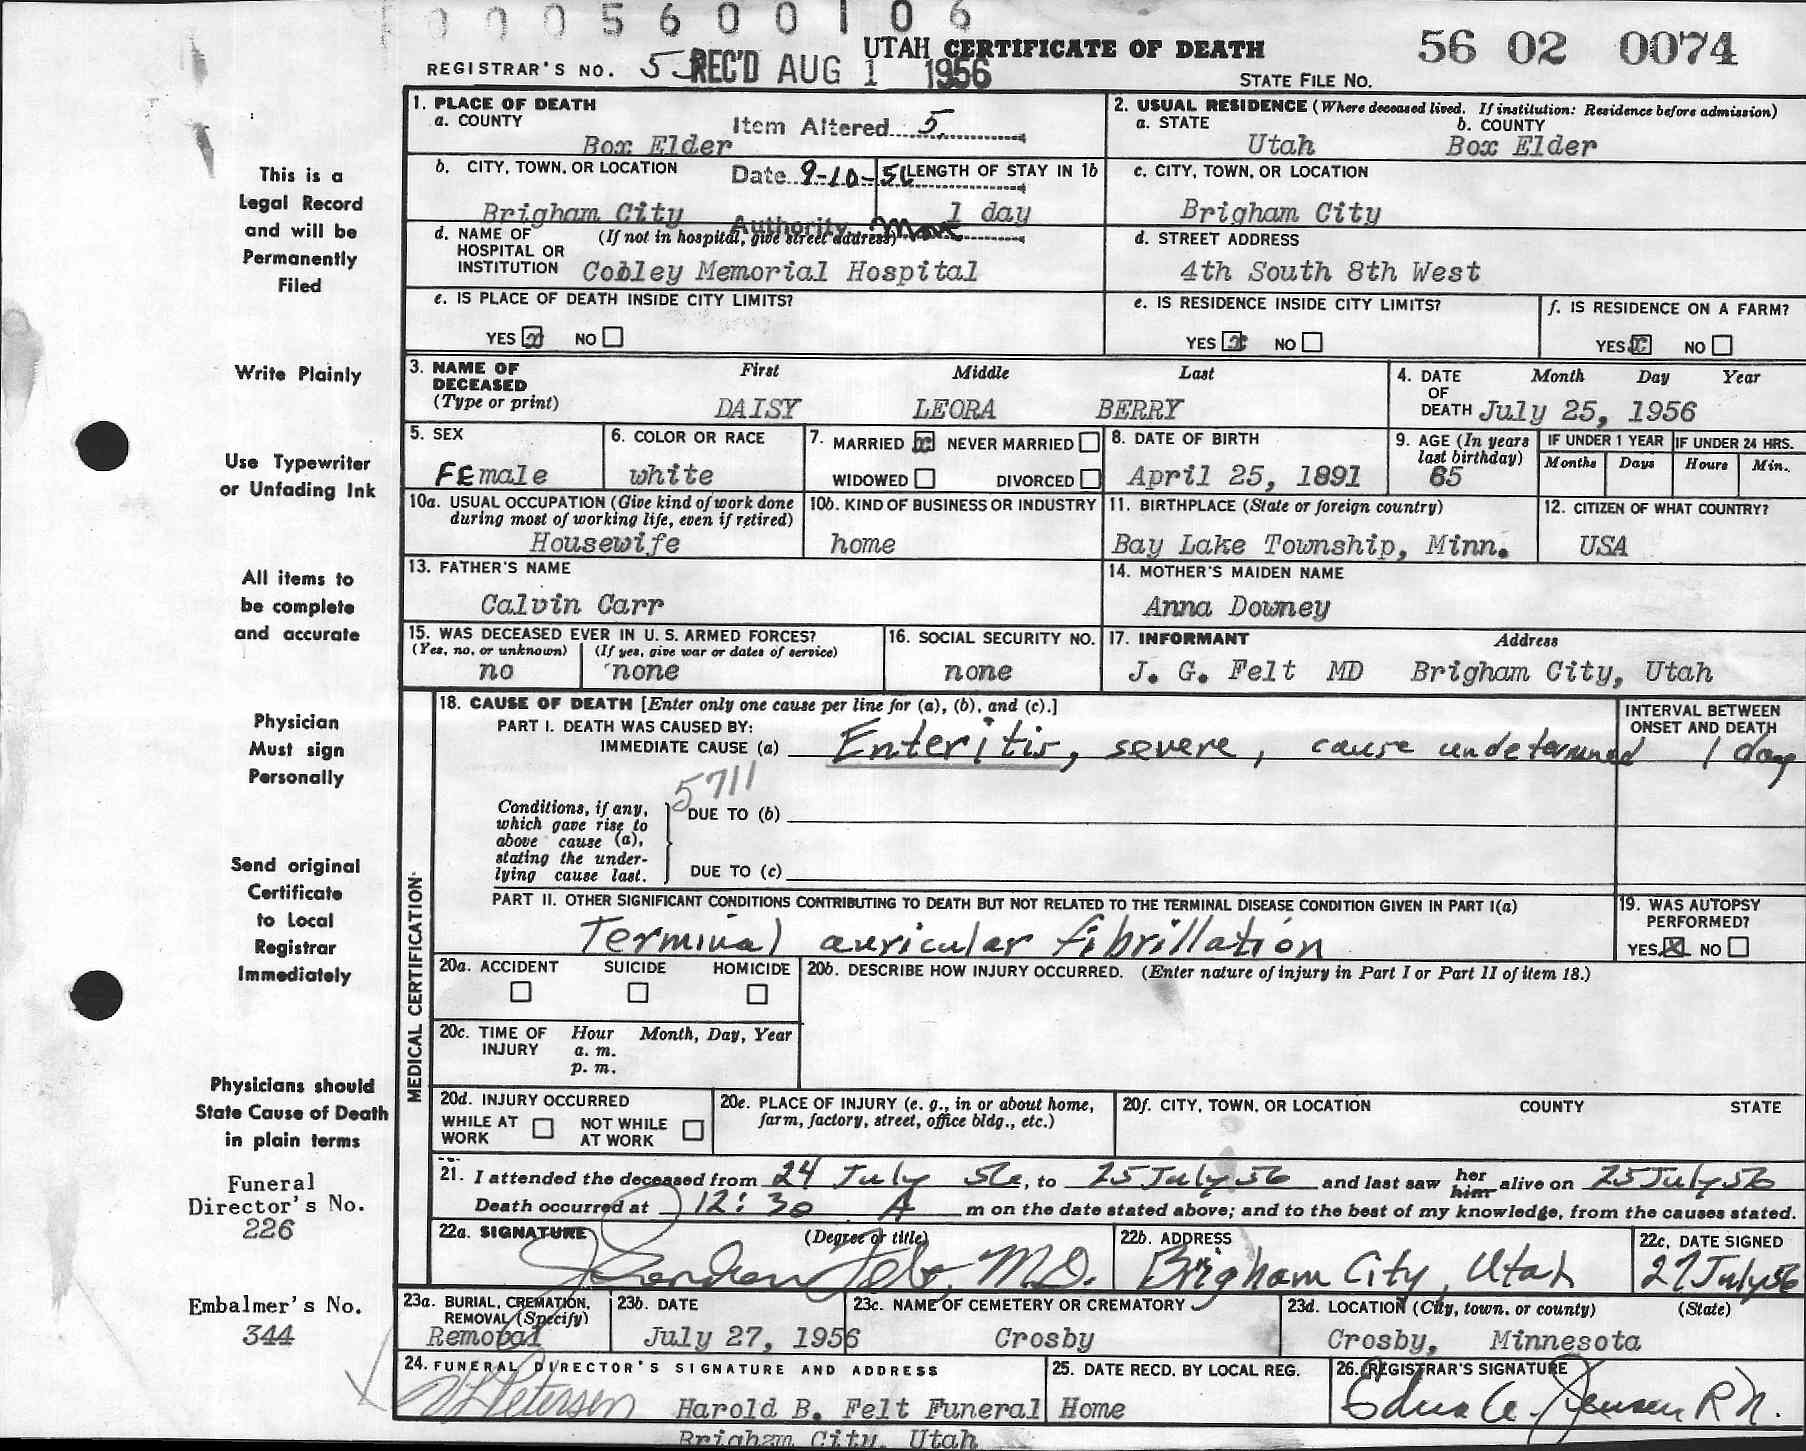 0 0 0 5 6 0 0 1 0 6
UTAH CERTIFICATE OF DEATH
56 02 0074
REGISTRAR'S NO. 5
REC'D AUG 1 1956
STATE FILE NO.
1. PLACE OF DEATH
a. COUNTY
Box Elder
Item Altered 5
2. USUAL RESIDENCE (Where deceased lived. If institution: Residence before admission)
a. STATE
Utah
b. COUNTY
Box Elder
b. CITY, TOWN, OR LOCATION
Brigham City
Date 9-10-56
LENGTH OF STAY IN 1b
1 day
Authority
c. CITY, TOWN, OR LOCATION
Brigham City
d. NAME OF HOSPITAL OR INSTITUTION
(If not in hospital, give street address)
Cooley Memorial Hospital
d. STREET ADDRESS
4th South 8th West
e. IS PLACE OF DEATH INSIDE CITY LIMITS?
YES x NO
e. IS RESIDENCE INSIDE CITY LIMITS?
YES x NO
f. IS RESIDENCE ON A FARM?
YES x NO
3. NAME OF DECEASED (Type or print)
First Middle Last
DAISY LEORA BERRY
4. DATE OF DEATH
Month Day Year
July 25, 1956
5. SEX
FEmale
6. COLOR OR RACE
white
7. MARRIED x NEVER MARRIED
WIDOWED DIVORCED
8. DATE OF BIRTH
April 25, 1891
9. AGE (In years last birthday)
65
IF UNDER 1 YEAR
Months Days
IF UNDER 24 HRS.
Hours Min.
10a. USUAL OCCUPATION (Give kind of work done during most of working life, even if retired)
Housewife
10b. KIND OF BUSINESS OR INDUSTRY
home
11. BIRTHPLACE (State or foreign country)
Bay Lake Township, Minn.
12. CITIZEN OF WHAT COUNTRY?
USA
13. FATHER'S NAME
Calvin Carr
14. MOTHER'S MAIDEN NAME
Anna Downey
15. WAS DECEASED EVER IN U. S. ARMED FORCES?
(Yes, no, or unknown) (If yes, give war or dates of service)
no none
16. SOCIAL SECURITY NO.
none
17. INFORMANT Address
J. G. Felt MD Brigham City, Utah
MEDICAL CERTIFICATION
18. CAUSE OF DEATH [Enter only one cause per line for (a), (b), and (c).]
PART I. DEATH WAS CAUSED BY:
IMMEDIATE CAUSE (a) Enteritis, severe, cause undetermined
INTERVAL BETWEEN ONSET AND DEATH
1 day
5711
Conditions, if any, which gave rise to above cause (a), stating the underlying cause last.
DUE TO (b)
DUE TO (c)
PART II. OTHER SIGNIFICANT CONDITIONS CONTRIBUTING TO DEATH BUT NOT RELATED TO THE TERMINAL DISEASE CONDITION GIVEN IN PART I(a)
Terminal auricular fibrillation
19. WAS AUTOPSY PERFORMED?
YES x NO
20a. ACCIDENT SUICIDE HOMICIDE
20b. DESCRIBE HOW INJURY OCCURRED. (Enter nature of injury in Part I or Part II of item 18.)
20c. TIME OF INJURY
Hour Month, Day, Year
a. m.
p. m.
20d. INJURY OCCURRED
WHILE AT WORK NOT WHILE AT WORK
20e. PLACE OF INJURY (e. g., in or about home, farm, factory, street, office bldg., etc.)
20f. CITY, TOWN, OR LOCATION COUNTY STATE
21. I attended the deceased from 24 July 56, to 25 July 56 and last saw her him alive on 25 July 56
Death occurred at 12:30 A m on the date stated above; and to the best of my knowledge, from the causes stated.
22a. SIGNATURE (Degree or title)
M.D.
22b. ADDRESS
Brigham City, Utah
22c. DATE SIGNED
27 July 56
23a. BURIAL, CREMATION, REMOVAL (Specify)
Removal
23b. DATE
July 27, 1956
23c. NAME OF CEMETERY OR CREMATORY
Crosby
23d. LOCATION (City, town, or county) (State)
Crosby, Minnesota
24. FUNERAL DIRECTOR'S SIGNATURE AND ADDRESS
Petersen
Harold B. Felt Funeral Home
Brigham City, Utah
25. DATE RECD. BY LOCAL REG.
26. REGISTRAR'S SIGNATURE
Edna A. Jensen R.N.
This is a
Legal Record
and will be
Permanently
Filed
Write Plainly
Use Typewriter
or Unfading Ink
All items to
be complete
and accurate
Physician
Must sign
Personally
Send original
Certificate
to Local
Registrar
Immediately
Physicians should
State Cause of Death
in plain terms
Funeral
Director's No.
226
Embalmer's No.
344